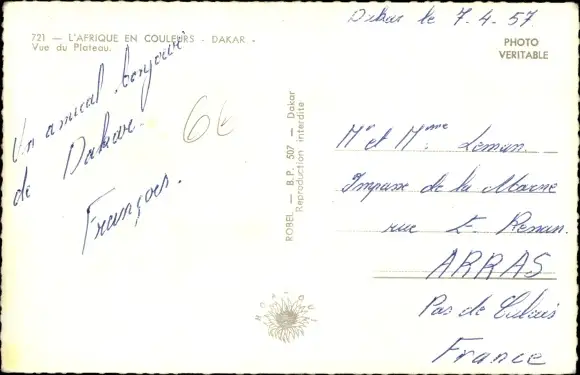 721 — L'AFRIQUE EN COULEURS - DAKAR -
Vue du Plateau.
Dakar le 7.4.57
PHOTO
VERITABLE
Un amical bonjour
de Dakar.
François.
6€
ROBEL — B.P. 507 — Dakar
Reproduction interdite
Mr et Mme Leman.
Impasse de la Marne
rue E. Renan.
ARRAS
Pas de Calais
France